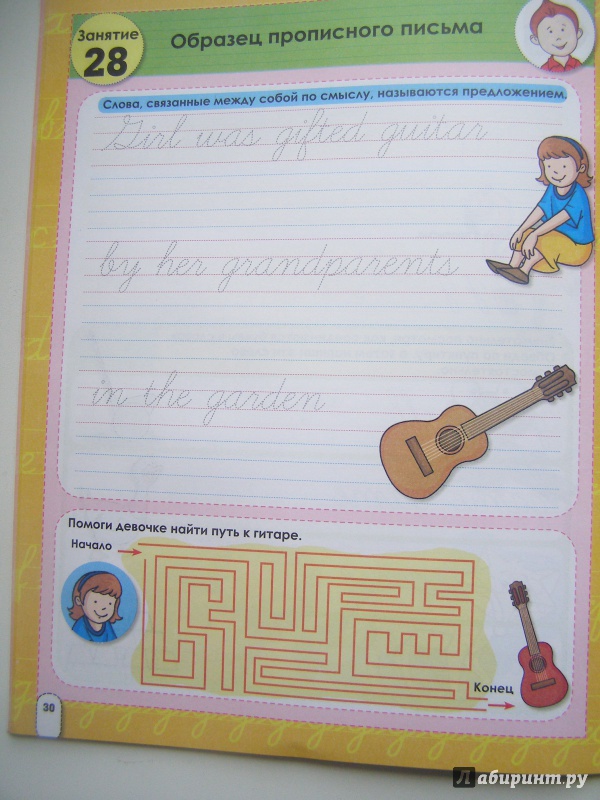 Занятие
28
Образец прописного письма
Слова, связанные между собой по смыслу, называются предложением.
Girl was gifted guitar
by her grandparents
in the garden
Помоги девочке найти путь к гитаре.
Начало
Конец
30
Лабиринт.ру